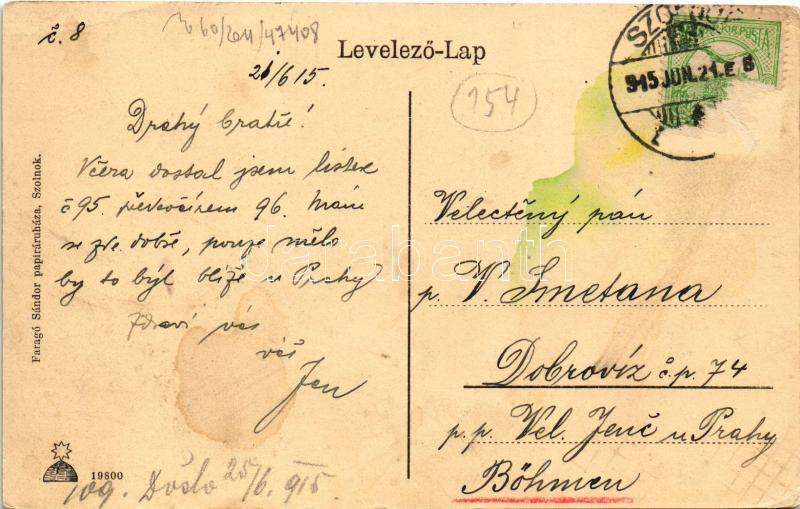 č. 8
60/204/47408
Levelező-Lap
21/6 15.
154
SZOLNOK
915 JUN. 21. E 6
POSTA
Drahý bratře!
Včera dostal jsem lístek
č 95. předvčírem 96. Mám
se zde dobře, pouze mělo
by to býl blíže u Prahy
Zdraví vás
váš
Jen
Velectěný pán
p. V. Smetana
Dobrovíz č. p. 74
p. p. Vel. Jenč u Prahy
Böhmen
Faragó Sándor papíráruháza, Szolnok.
19800
109. Došlo 25/6. 915
darabanth